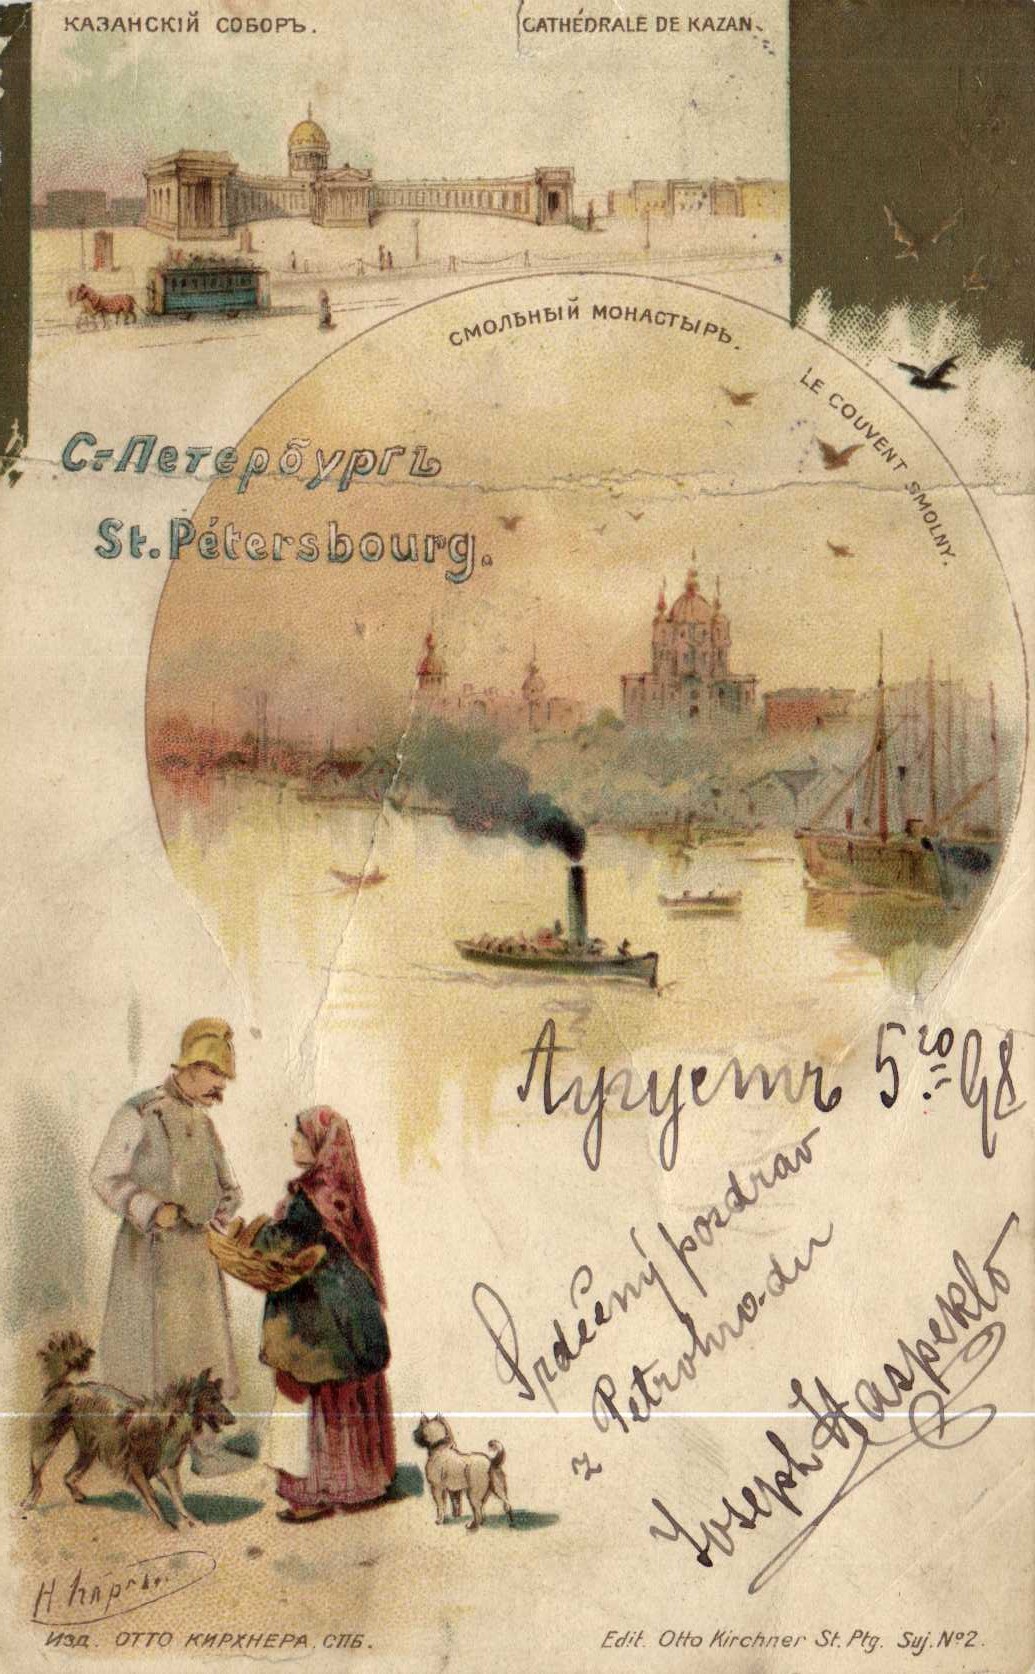 КАЗАНСКІЙ СОБОРЪ.
CATHÉDRALE DE KAZAN.
СМОЛЬНЫЙ МОНАСТЫРЬ.
LE COUVENT SMOLNY.
С-Петербургъ
St. Pétersbourg.
Аугустъ 5го 98
Srdečný pozdrav
z Petrohradu
Joseph
Изд. ОТТО КИРХНЕРА. СПБ.
Edit. Otto Kirchner St. Ptg. Suj. Nº 2.